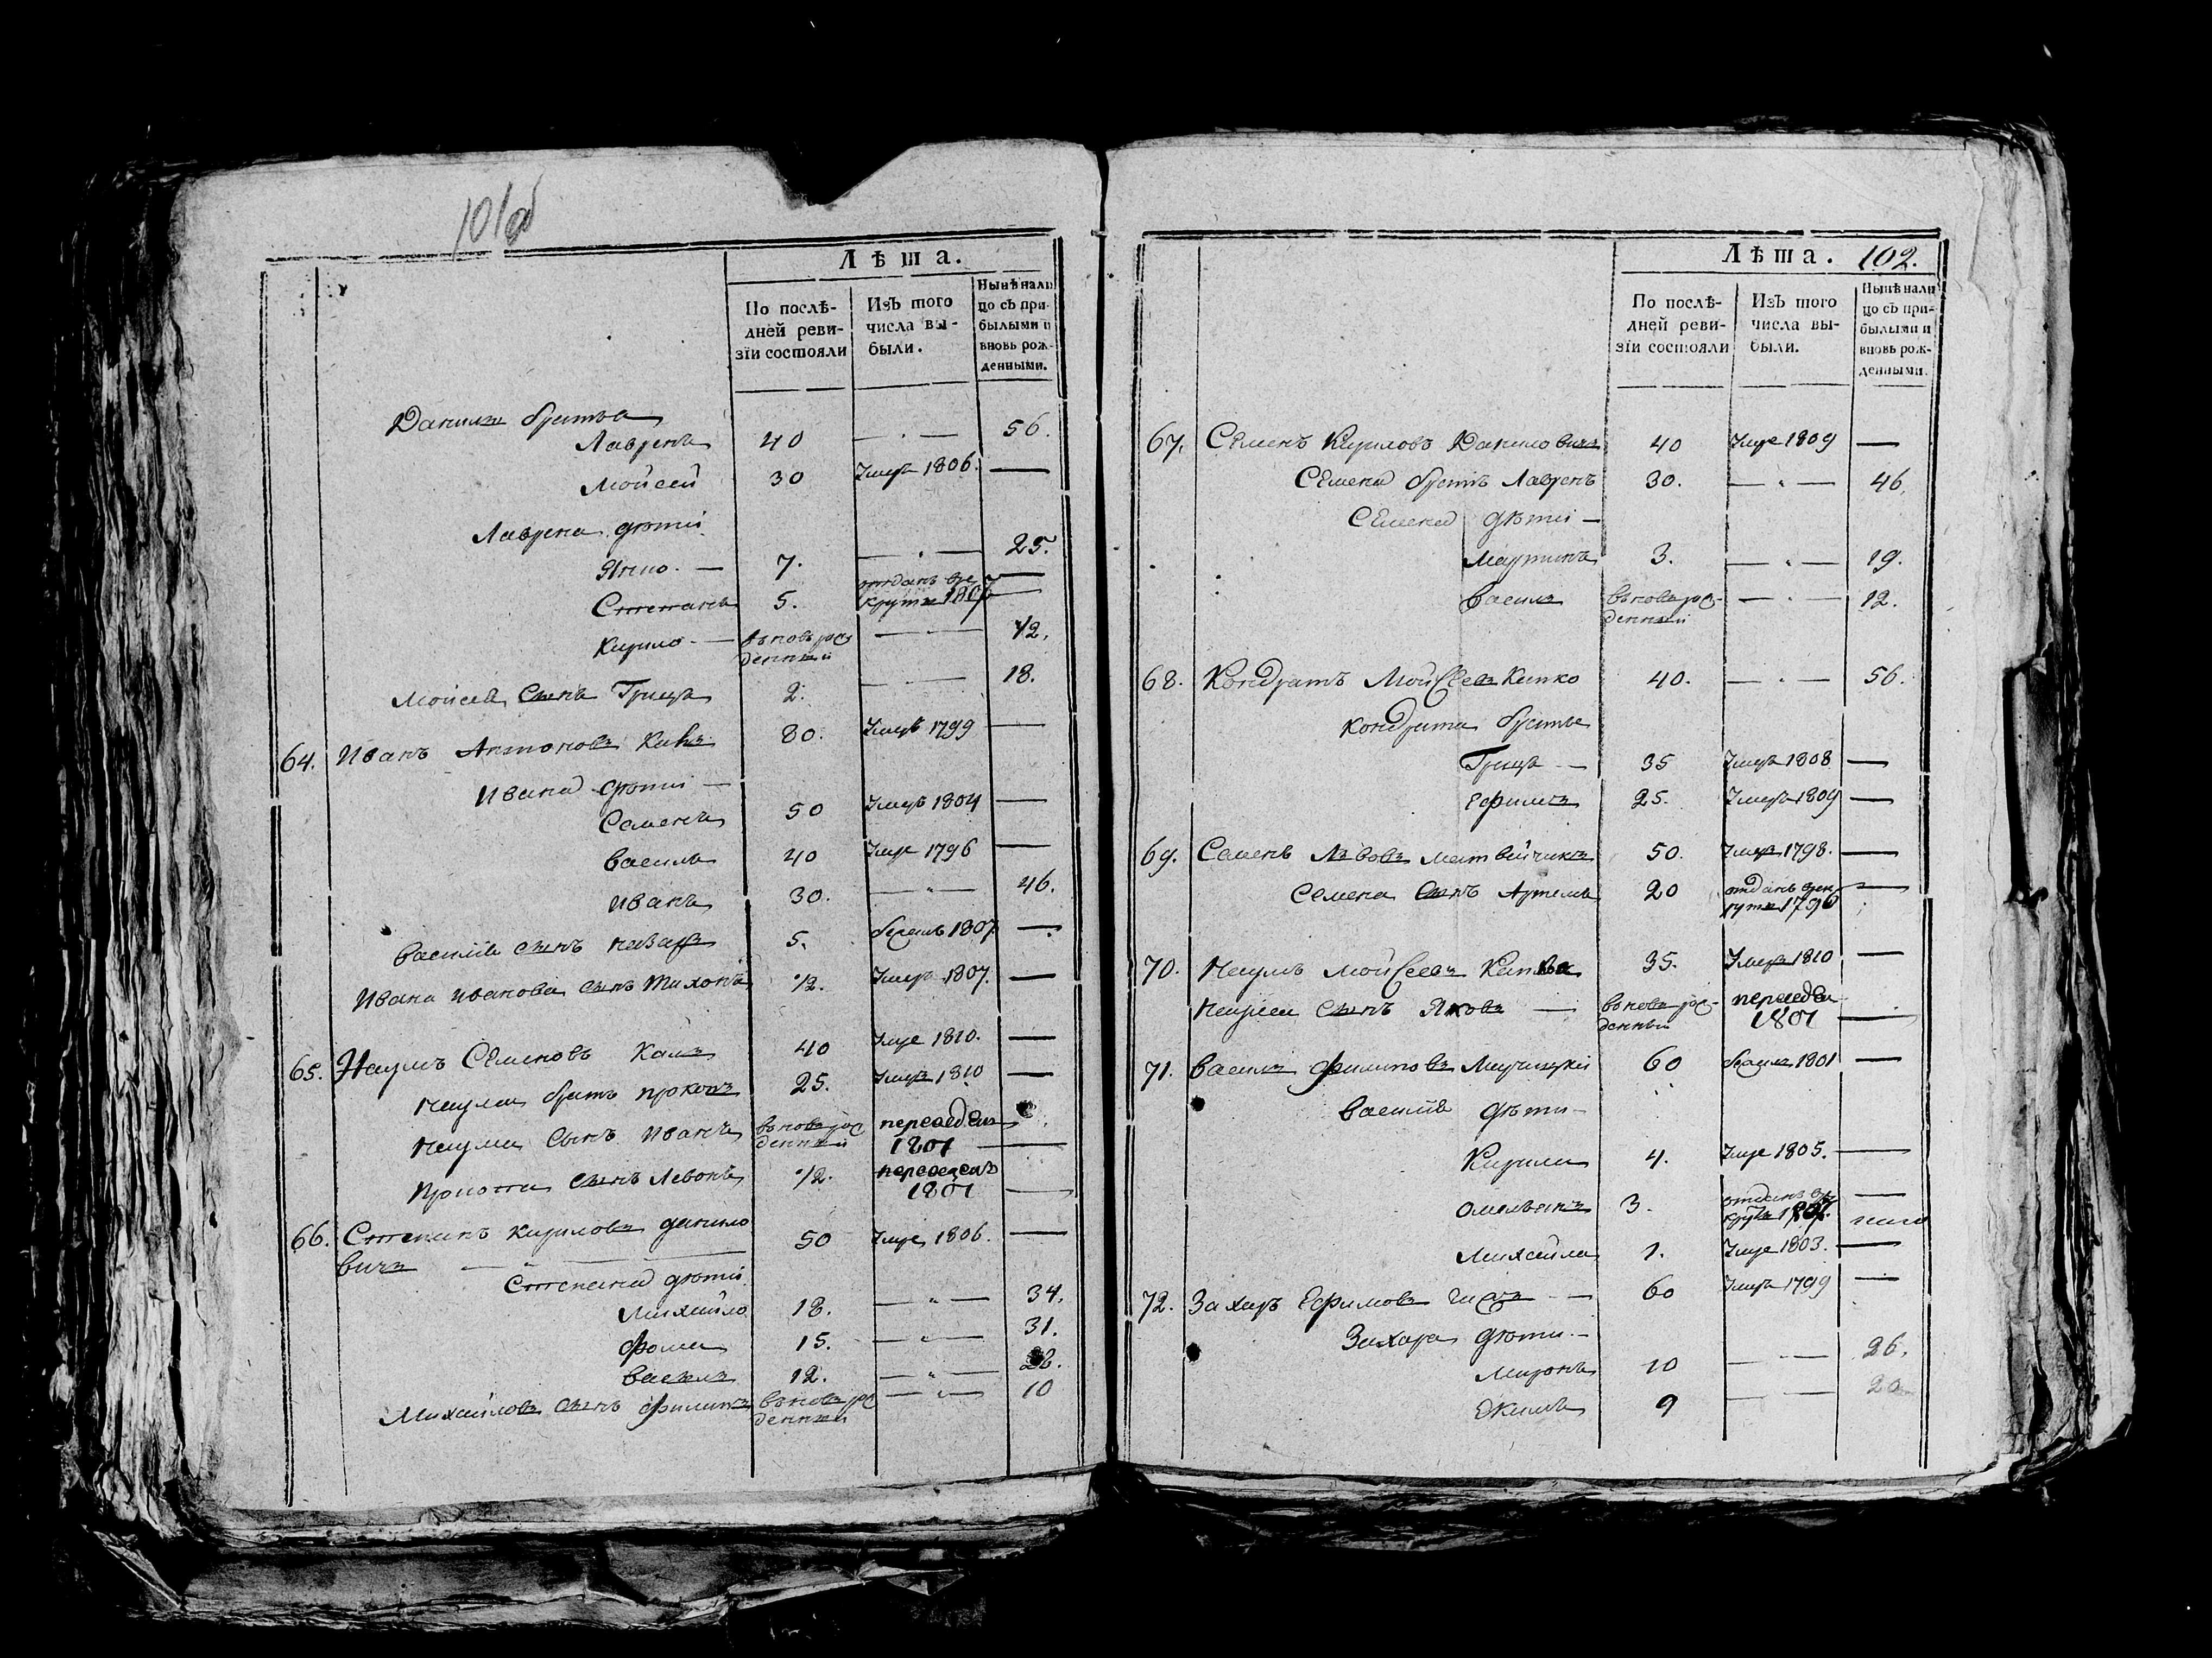 101об
Лѣта.
По послѣдней ревизїи состояли
Изъ того числа выбыли.
Нынѣ налицо съ прибылыми и вновь рожденными.
Данилы братья
Лавренъ 40 — . — 56.
Мойсей 30 Умеръ 1806. —
Лаврена дѣти
Янко — 7. — . — 25.
Степанъ 5. отданъ врекруты 1807 —
Кирило — вьновь рожденный — 12.
Мойсея сынъ Грицъ 2. — 18.
64. Иванъ Антоновъ 80. Умеръ 1799 —
Ивана дѣти —
Семенъ 50 Умеръ 1804 —
Василь 40 Умре 1796 —
Иванъ 30. — " — 46.
Василія сынъ Назаръ 5. бежалъ 1807 —
Ивана Иванова сынъ Тихонъ ½. Умеръ 1807. —
65. Наумъ Семеновъ 40 Умре 1810. —
Наума братъ Прокопъ 25. Умеръ 1810 —
Наума сынъ Иванъ вьновь рожденный переведенъ 1801 —
Прокопа сынъ Левонъ ½. переведенъ 1801 —
66. Степанъ Кириловъ Данило
вичъ — " — 50 Умре 1806. —
Степана дѣти
Михайло 18. — " — 34.
Фома 15. — " — 31.
Василь 12. — " — 28.
Михайловъ сынъ Филипъ вьновь рожденный — " — 10
102.
Лѣта.
По послѣдней ревизїи состояли
Изъ того числа выбыли.
Нынѣ налицо съ прибылыми и вновь рожденными.
67. Семенъ Кириловъ Даниловичъ 40 Умре 1809 —
Семена братъ Лавренъ 30. — " — 46.
Семена дѣти —
Мартинъ 3. — " — 19.
Василь вьновь рожденный — " — 12.
68. Кондратъ Мойсеевъ Кипко 40. — " — 56.
Кондрата братья
Грицъ — 35 Умеръ 1808 —
Ефимъ 25. Умеръ 1809 —
69. Семенъ Матвейчикъ 50. Умеръ 1798. —
Семена сынъ Артемъ 20 отданъ врекруты 1796 —
70. Наумъ Мойсеевъ 35. Умеръ 1810 —
Наума сынъ Яковъ — вьновь рожденный переведенъ 1801 —
71. Василь Филиповъ 60 бежалъ 1801 —
Василія дѣти —
Кирила 4. Умре 1805. —
Омельянъ 3. отданъ врекруты —
Михайла 1. Умре 1803. —
72. Захаръ Ефимовъ — 60 Умеръ 1799 —
Захара дѣти —
Миронъ 10 — 26.
Екимъ 9 — 20